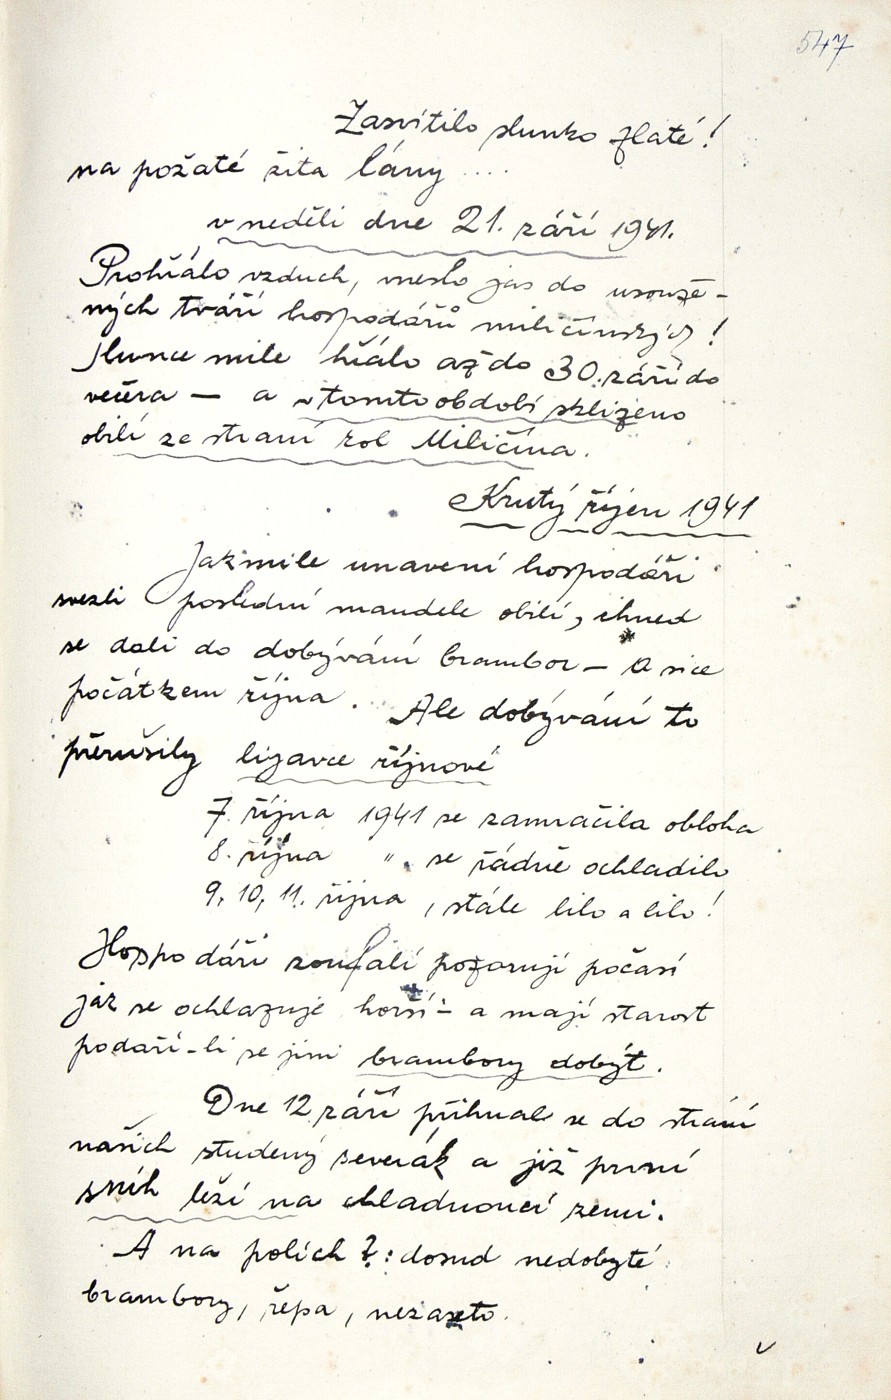 547
Zasvítilo slunko zlaté!
na požaté žita lány ....
v neděli dne 21. září 1941.
Prohřálo vzduch, vneslo jas do usouže-
ných tváří hospodářů miličínských!
Slunce mile hřálo až do 30. září do
večera — a v tomto období sklizeno
obilí ze strání rol Miličína.
Krutý říjen 1941
Jakmile unavení hospodáři
svezli poslední mandele obilí, ihned
se dali do dobývání brambor — a sice
počátkem října. Ale dobývání to
přerušily lijavce říjnové
7. října 1941 se zamračila obloha
8. října " se řádně ochladilo
9, 10, 11. října, stále lilo a lilo!
Hospodáři zoufalí pozorují počasí
jak se ochlazuje horší — a mají starost
podaří-li se jimi brambory dobýt.
Dne 12 září přihnal se do strání
našich studený severák a již první
sníh leží na chladnoucí zemi.
A na polích?: dosud nedobyté
brambory, řepa, nezaseto.